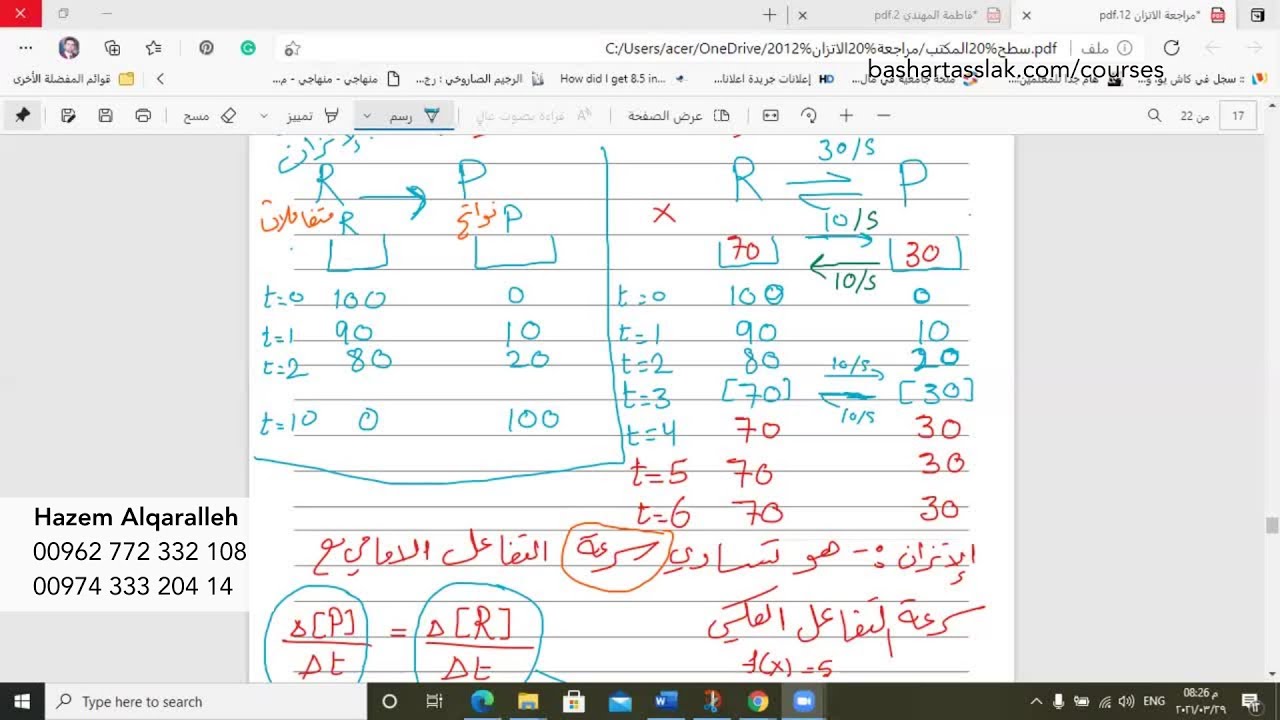 مراجعة الاتزان 12.pdf*
فاطمة المهندي 2.pdf*
ملف
C:/Users/acer/OneDrive/سطح%20المكتب/مراجعة%20الاتزان%2012.pdf
bashartasslak.com/courses
سجل في كاش يو، و...
هام جدا للمعلمين...
منحة جامعية في مال...
HD إعلانات جديدة اعلانا...
How did I get 8.5 in...
الرجيم الصاروخي : رج...
منهاجي - منهاجي - م...
قوائم المفضلة الأخرى
17
من 22
عرض الصفحة
قراءة بصوت عالي
رسم
تمييز
مسح
R ⇌ P
30/s
10/s
R → P
متفاعلات R
نواتج P
×
70
30
10/s
t=0 100 0
t=1 90 10
t=2 80 20
t=10 0 100
t=0 100 0
t=1 90 10
t=2 80 20
10/s
t=3 [70] [30]
10/s
t=4 70 30
t=5 70 30
t=6 70 30
الإتزان :- هو تساوي سرعة التفاعل الامامي مع
سرعة التفاعل العكسي
Δ[P]/Δt = Δ[R]/Δt
f(x)=5
Hazem Alqaralleh
00962 772 332 108
00974 333 204 14
Type here to search
ENG
م 08:26
٢٠٢١/٠٣/٢٩